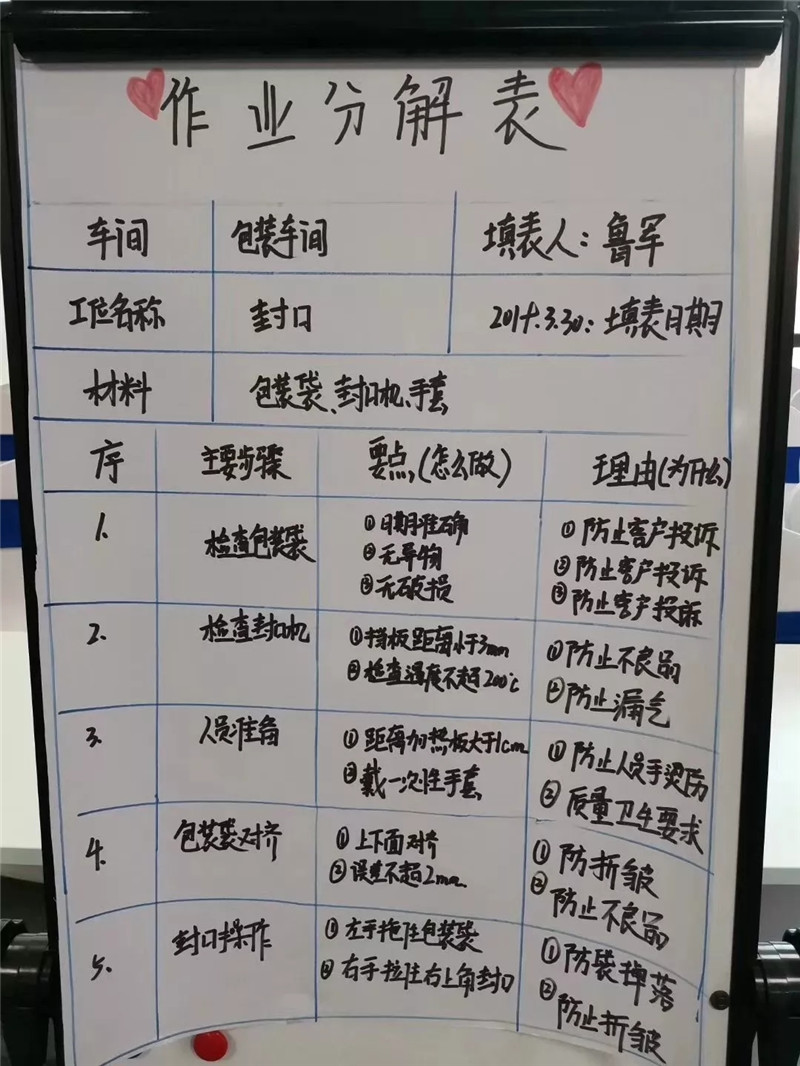 作业分解表
车间 包装车间 填表人：鲁军
工位名称 封口 2019.3.30：填表日期
材料 包装袋、封口机、手套
序 主要步骤 要点（怎么做） 理由（为什么）
1. 检查包装袋 ①日期准确 ①防止客户投诉
②无异物 ②防止客户投诉
③无破损 ③防止客户投诉
2. 检查封口机 ①挡板距离小于3mm ①防止不良品
②检查温度不超200℃ ②防止漏气
3. 人员准备 ①距离加热板大于1cm ①防止人员手烫伤
②戴一次性手套 ②质量卫生要求
4. 包装袋对齐 ①上下面对齐 ①防折皱
②误差不超2mm ②防止不良品
5. 封口操作 ①左手拖住包装袋 ①防袋掉落
②右手拉住右上角封口 ②防止折皱